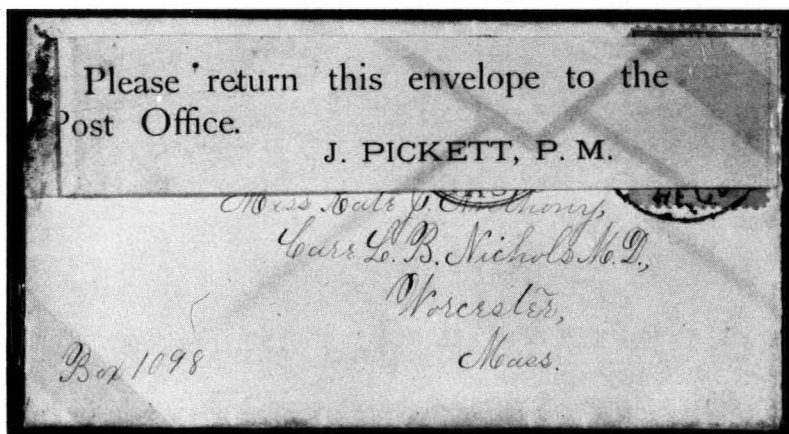 Please return this envelope to the
Post Office.
J. PICKETT, P. M.
Miss Kate J. Anthony,
Care L. B. Nichols M.D.,
Worcester,
Mass.
Box 1098